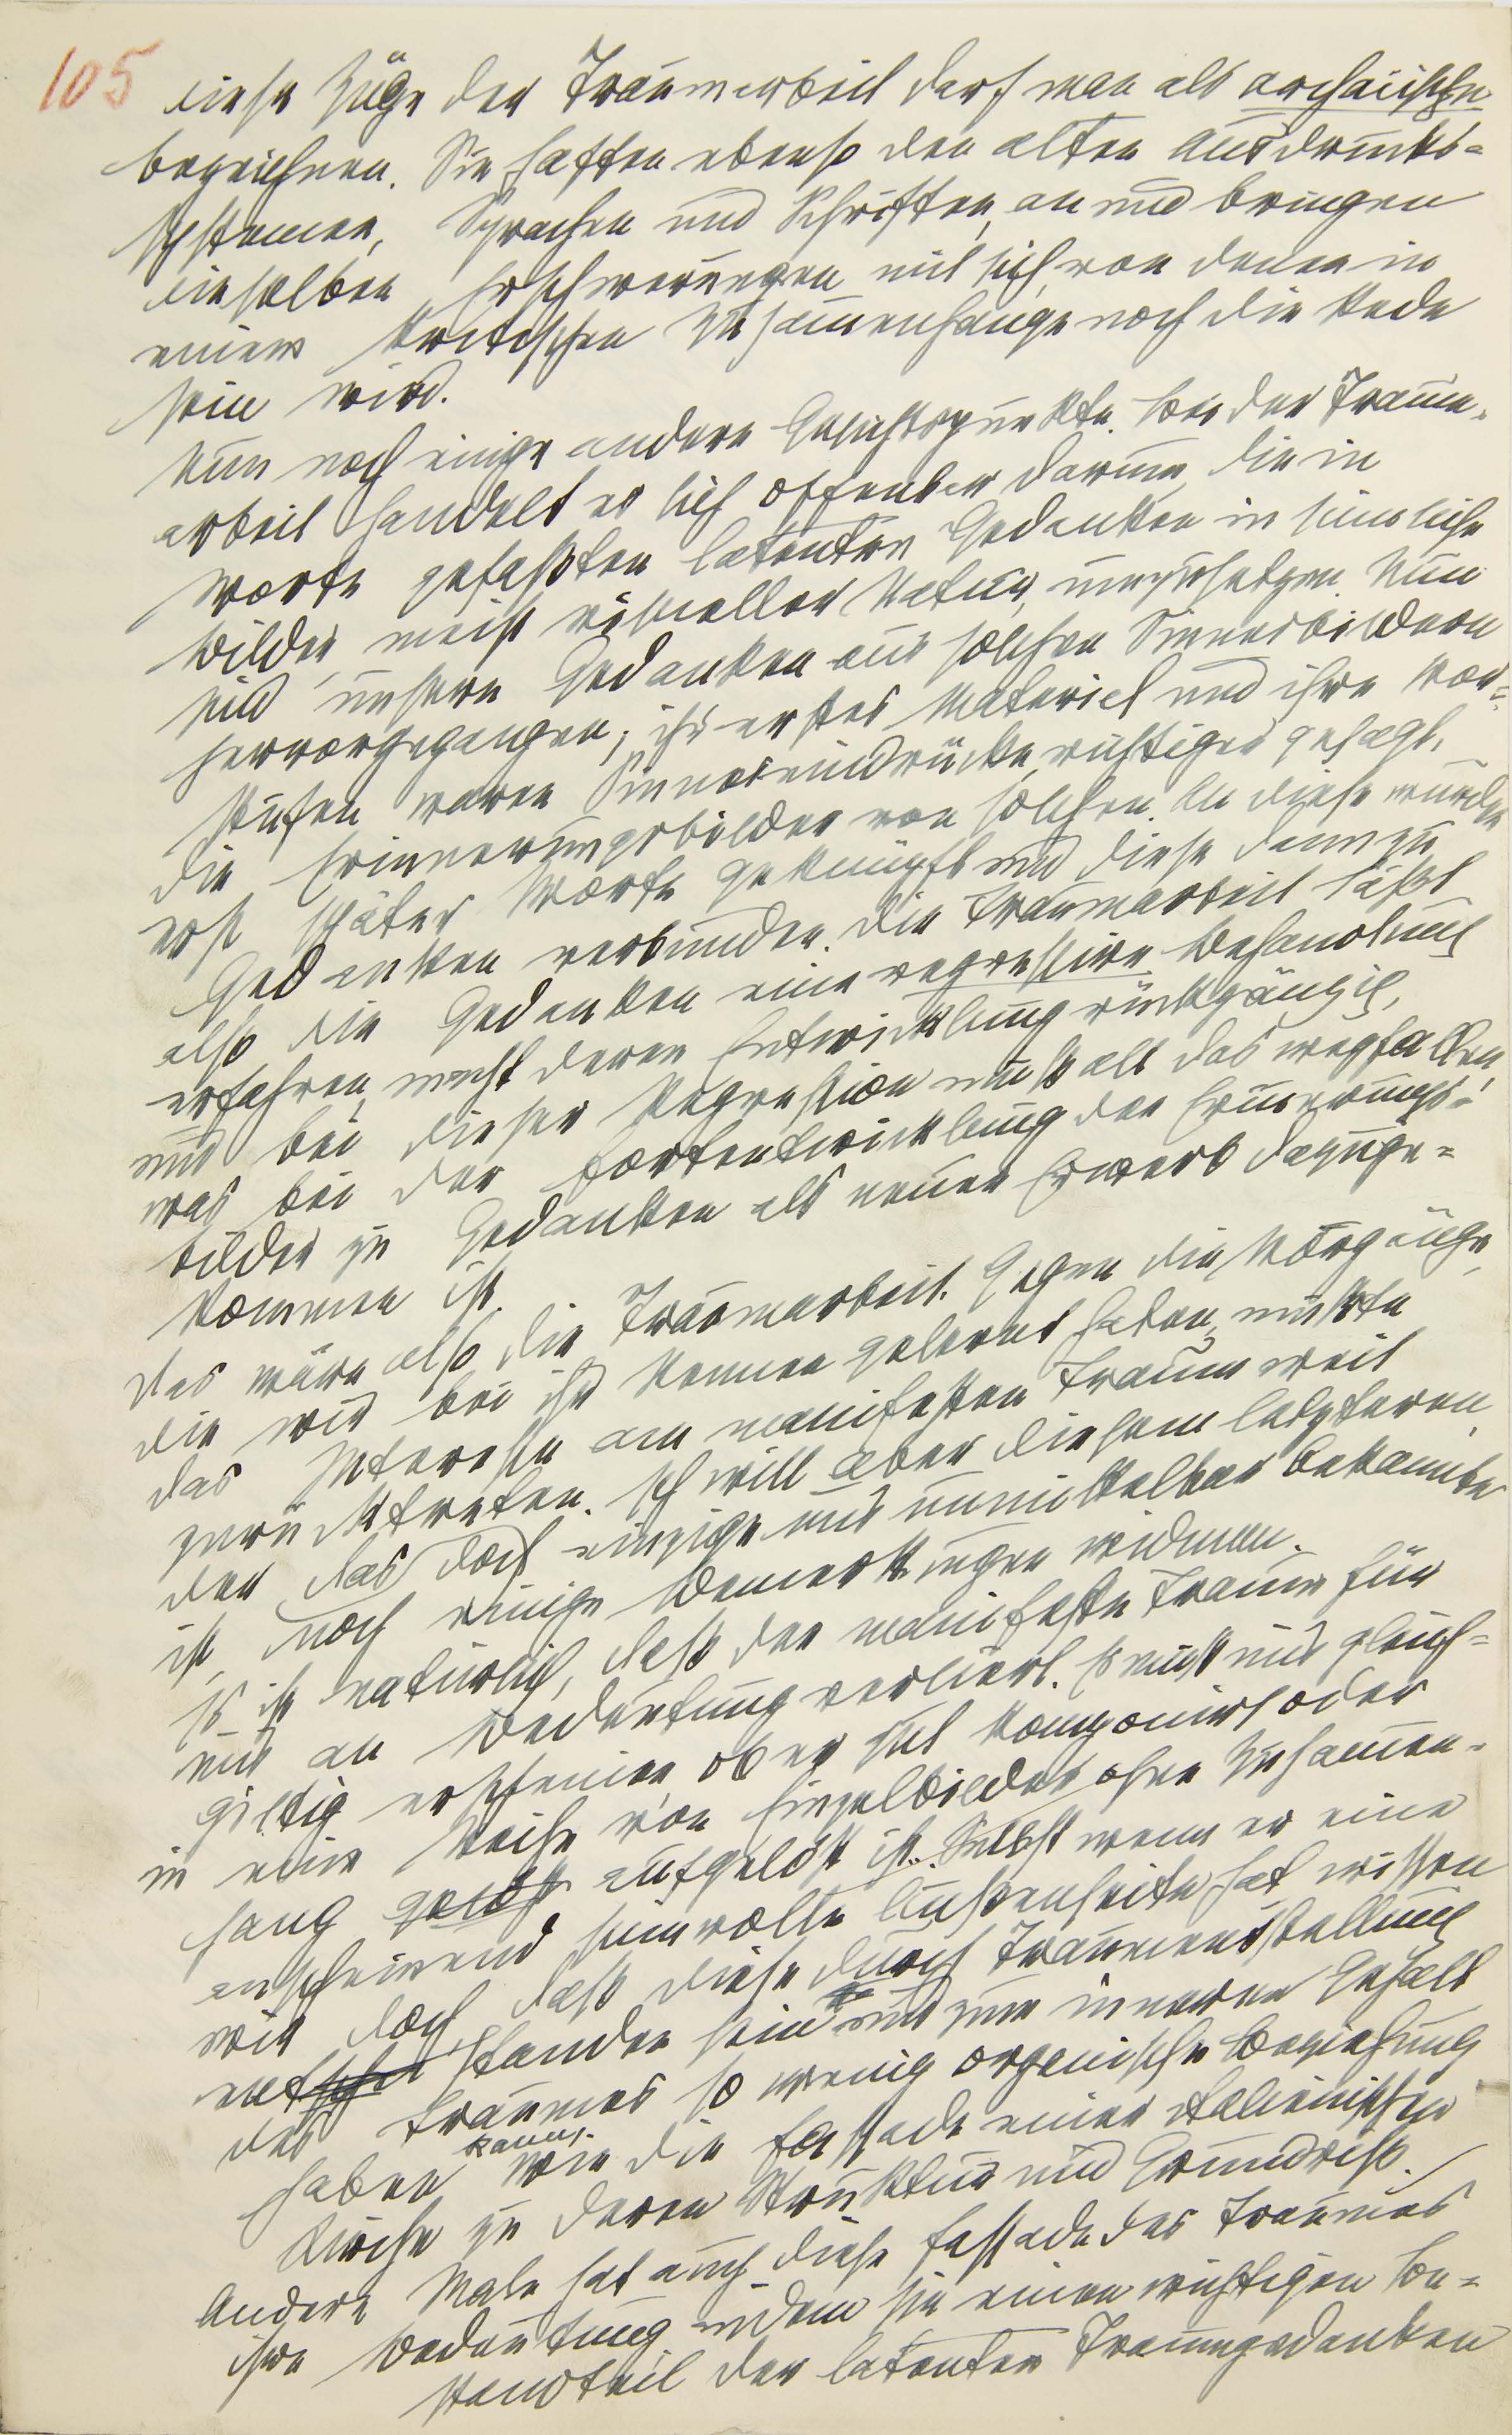 105
diese Züge der Traumarbeit darf man als archaische
bezeichnen. Sie haften ebenso den alten Ausdrucks=
systemen, Sprachen und Schriften, an und bringen
dieselben Erschwerungen mit sich, von denen in
einem kritischen Zusammenhange noch die Rede
sein wird.
Nun noch einige andere Gesichtspunkte. Bei der Traum-
arbeit handelt es sich offenbar darum, die in
Worte gefaßten latenten Gedanken in sinnliche
Bilder, meist visueller Natur, umzusetzen. Nun
sind unsere Gedanken aus solchen Sinnesbildern
hervorgegangen; ihr erstes Material und ihre Vor=
stufen waren Sinneseindrücke, richtiger gesagt,
die Erinnerungsbilder von solchen. An diese wurden
erst später Worte geknüpft und diese dann zu
Gedanken verbunden. Die Traumarbeit läßt
also die Gedanken eine regressive Behandlung
erfahren, macht deren Entwicklung rückgängig,
und bei dieser Regression muß all das wegfallen,
was bei der Fortentwicklung der Erinnerungs=
bilder zu Gedanken als neuer Erwerb dazuge=
kommen ist.
Das wäre also die Traumarbeit. Gegen die Vorgänge,
die wir bei ihr kennen gelernt haben, mußte
das Interesse am manifesten Traum weit
zurücktreten. Ich will aber diesem letzteren,
der das doch einzige uns unmittelbar bekannte
ist, noch einige Bemerkungen widmen.
Es ist natürlich, daß der manifeste Traum für
uns an Bedeutung verliert. Es muß uns gleich=
giltig erscheinen ob er gut komponirt oder
in eine Reihe von Einzelbilder ohne Zusammen-
hang gelöst aufgelöst ist. Selbst wenn er eine
anscheinend sinnvolle Außenseite hat, wissen
wir doch, daß diese durch Traumentstellung
entstanden sein und zum inneren Gehalt
des Traumes so wenig organische Beziehung
haben kann, wie die Fassade einer italienischen
Kirche zu deren Struktur und Grundriß.
Andere Male hat auch diese Fassade des Traumes
ihre Bedeutung, indem sie einen wichtigen Be=
standteil der latenten Traumgedanken